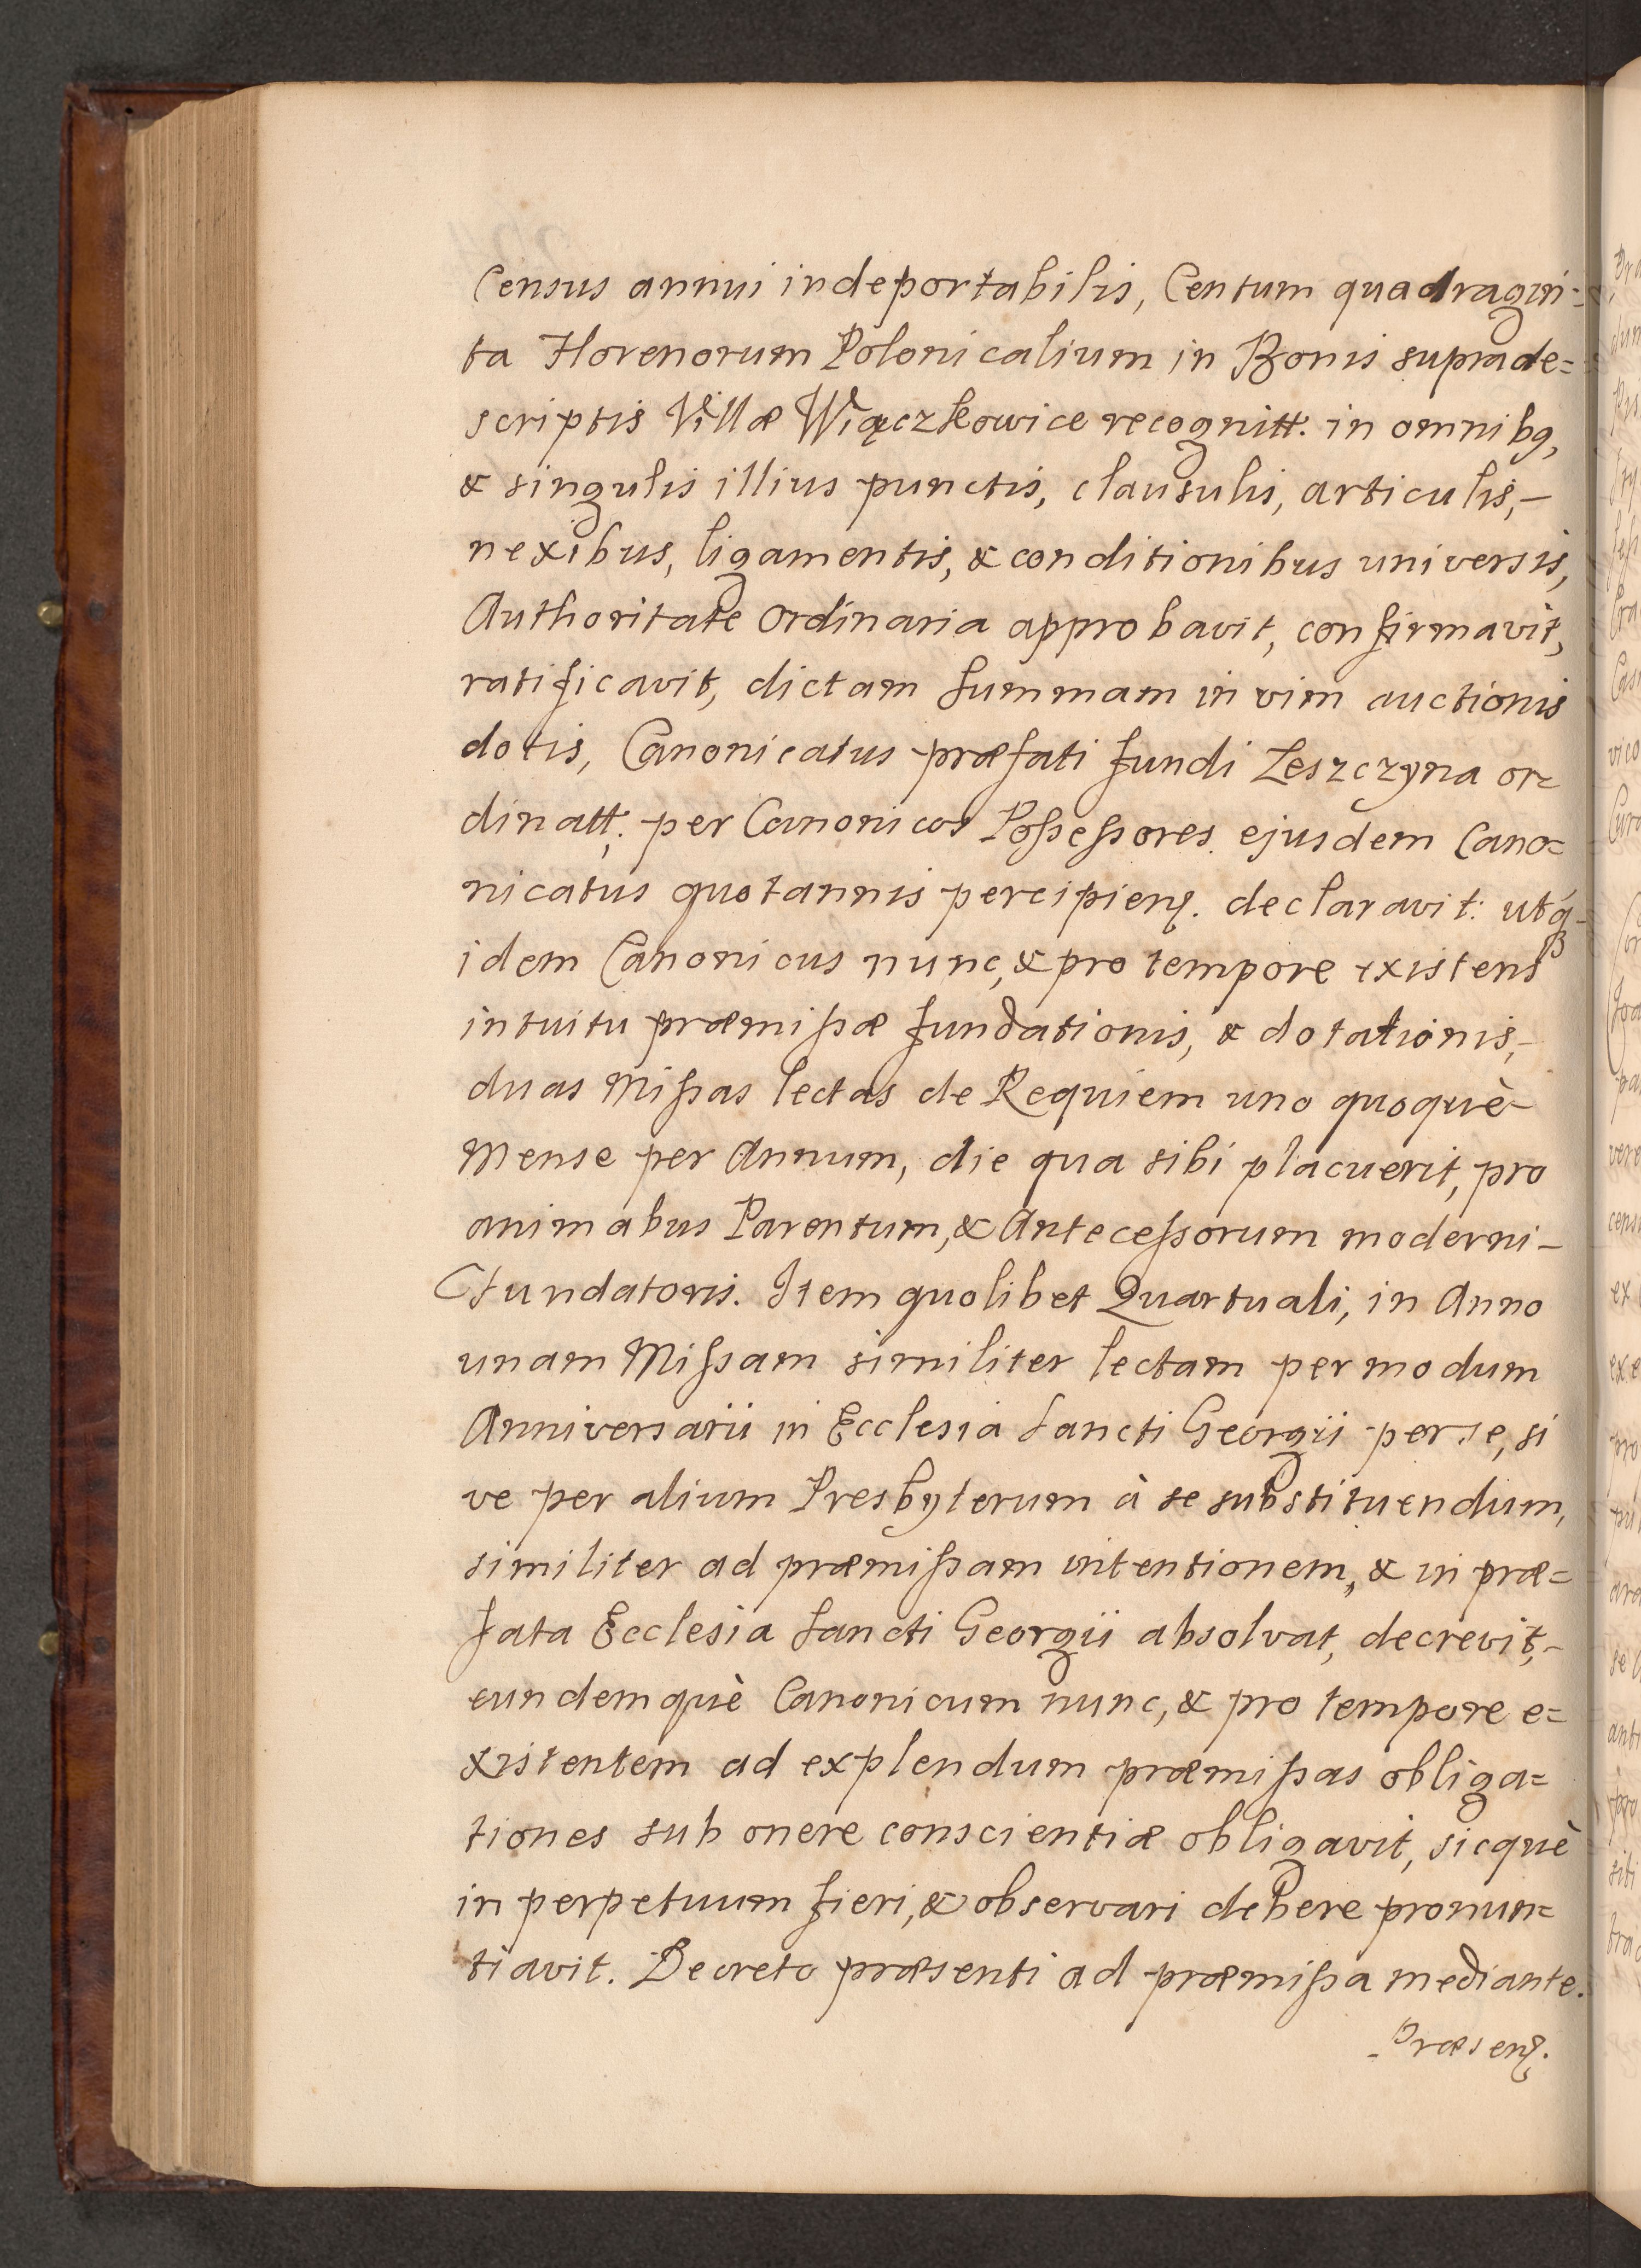 Census annui indeportabilis, Centum quadragin=
ta Florenorum Polonicalium in Bonis suprade=
scriptis Villæ Wiączkowice recognitt. in omnibq,
& singulis illius punctis, clausulis, articulis,-
nexibus, ligamentis, & conditionibus universis,
Authoritate Ordinaria approbavit, confirmavit,
ratificavit, dictam summam in vim auctionis
dotis, Canonicatus præfati fundi Leszczyna or=
dinatt. per Canonicos Possessores ejusdem Cano=
nicatus quotannis percipien. declaravit: utq
idem Canonicus nunc, & pro tempore existens
intuitu præmissæ fundationis, & dotationis,-
duas Missas lectas de Requiem uno quoquè-
Mense per Annum, die qua sibi placuerit, pro
animabus Parentum, & Antecessorum moderni-
Fundatoris. Item quolibet Quartuali, in Anno
unam Missam similiter lectam per modum
Anniversarii in Ecclesia Sancti Georgii per se, si
ve per alium Presbyterum à se substituendum,
similiter ad præmissam intentionem, & in præ=
fata Ecclesia Sancti Georgii absolvat, decrevit,-
eundemquè Canonicum nunc, & pro tempore e=
xistentem ad explendum præmissas obliga=
tiones sub onere conscientiæ obligavit, sicquè
in perpetuum fieri, & observari debere pronun=
tiavit. Decreto præsenti ad præmissa mediante.
Præsen.